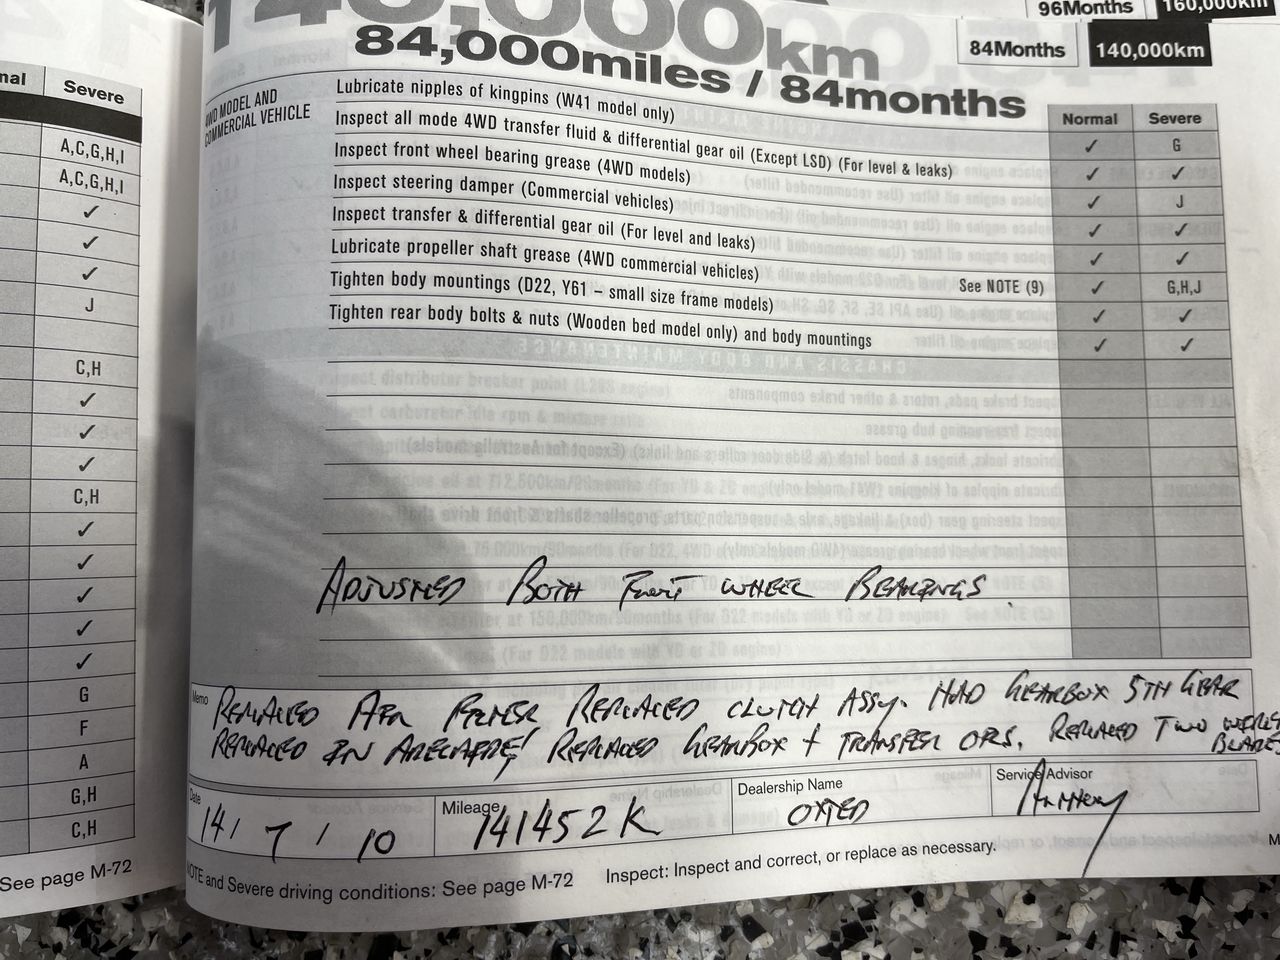 96Months
160,000km
140,000km
84,000miles / 84months
84Months
140,000km
Severe
A,C,G,H,I
A,C,G,H,I
✓
✓
✓
J
C,H
✓
✓
✓
C,H
✓
✓
✓
✓
✓
G
F
A
G,H
C,H
See page M-72
4WD MODEL AND
COMMERCIAL VEHICLE
Normal Severe
Lubricate nipples of kingpins (W41 model only) ✓ G
Inspect all mode 4WD transfer fluid & differential gear oil (Except LSD) (For level & leaks) ✓ ✓
Inspect front wheel bearing grease (4WD models) ✓ J
Inspect steering damper (Commercial vehicles) ✓ ✓
Inspect transfer & differential gear oil (For level and leaks) ✓ ✓
Lubricate propeller shaft grease (4WD commercial vehicles) See NOTE (9) ✓ G,H,J
Tighten body mountings (D22, Y61 – small size frame models) ✓ ✓
Tighten rear body bolts & nuts (Wooden bed model only) and body mountings ✓ ✓
ADJUSTED BOTH FRONT WHEEL BEARINGS.
Memo
REPLACED AIR FILTER REPLACED CLUTCH ASSY. HAD GEARBOX 5TH GEAR
REPLACED IN REPLACED GEARBOX + TRANSFER OILS. REPLACED TWO WIPER
BLADES
Date
14/ 7 / 10
Mileage
141452K
Dealership Name
Service Advisor
NOTE and Severe driving conditions: See page M-72
Inspect: Inspect and correct, or replace as necessary.